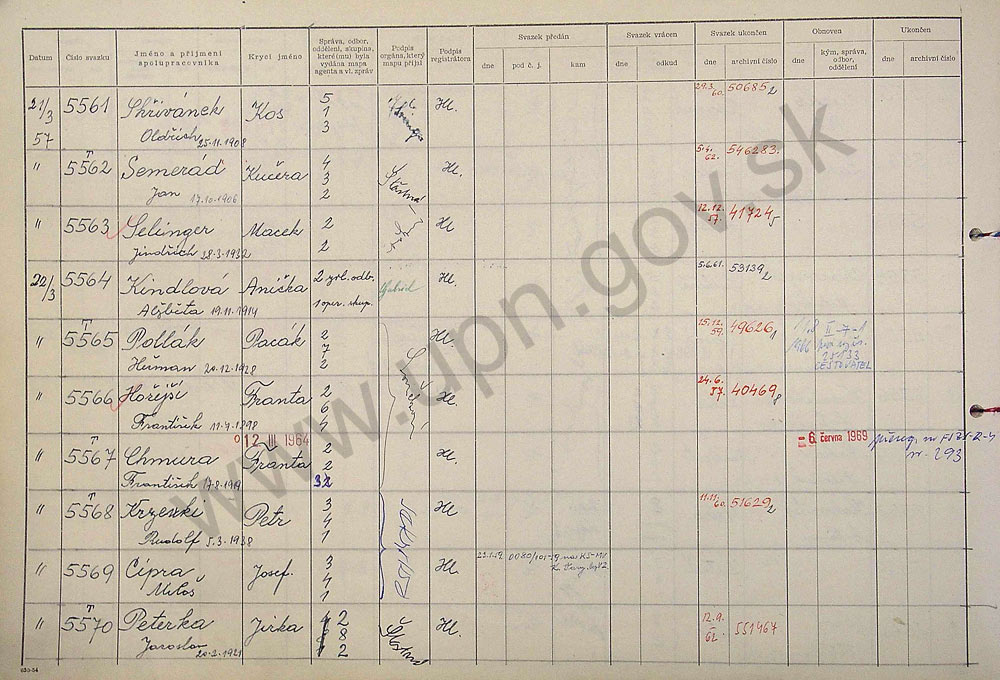 Datum
Číslo svazku
Jméno a příjmení spolupracovníka
Krycí jméno
Správa, odbor, oddělení, skupina, které(mu) byla vydána mapa agenta a vl. zpráv
Podpis orgána, který mapu přijal
Podpis registrátora
Svazek předán
dne
pod č. j.
kam
Svazek vrácen
dne
odkud
Svazek ukončen
dne
archivní číslo
Obnoven
dne
kým, správa, odbor, oddělení
Ukončen
dne
archivní číslo
21/3 57 5561 Skřivánek Kos 5 1 3 Hl. 29.3. 60. 50685/2
Oldřich 25.11.1908
" T 5562 Semerád Kučera 4 3 2 Šťastná Hl. 5.4. 62. 546283.
Jan 17.10.1906
" 5563 Selinger Macek 2 2 Hl 12.12. 57. 41724/5
Jindřich 28.3.1932
22/3 5564 Kindlová Anička 2 zvl. odb. 1 oper. skup. Hl. 5.6.61. 59139/2
Alžběta 19.11.1914
" T 5565 Pollák Pacák 2 7 2 Hl. 15.12. 59. 49626/1 II-7-1 CESTOVATEL
Heřman 20.12.1928
" T 5566 Hořejší Franta 2 6 4 Hl. 24.6. 57. 40469/8
František 11.4.1898
" 5567 12. III. 1964 Chmura Franta 2 2 32 Hl - 6. června 1969
František 17.8.1919
" T 5568 Krzenki Petr 3 4 1 Hl 11.11. 60. 51629/2
Rudolf 5.3.1938
" 5569 Cipra Josef. 3 4 1 Hl.
Miloš
" T 5570 Peterka Jirka 2 8 2 Šťastná Hl. 12.9. 62. 551467
Jaroslav 20.3.1921
www.upn.gov.sk